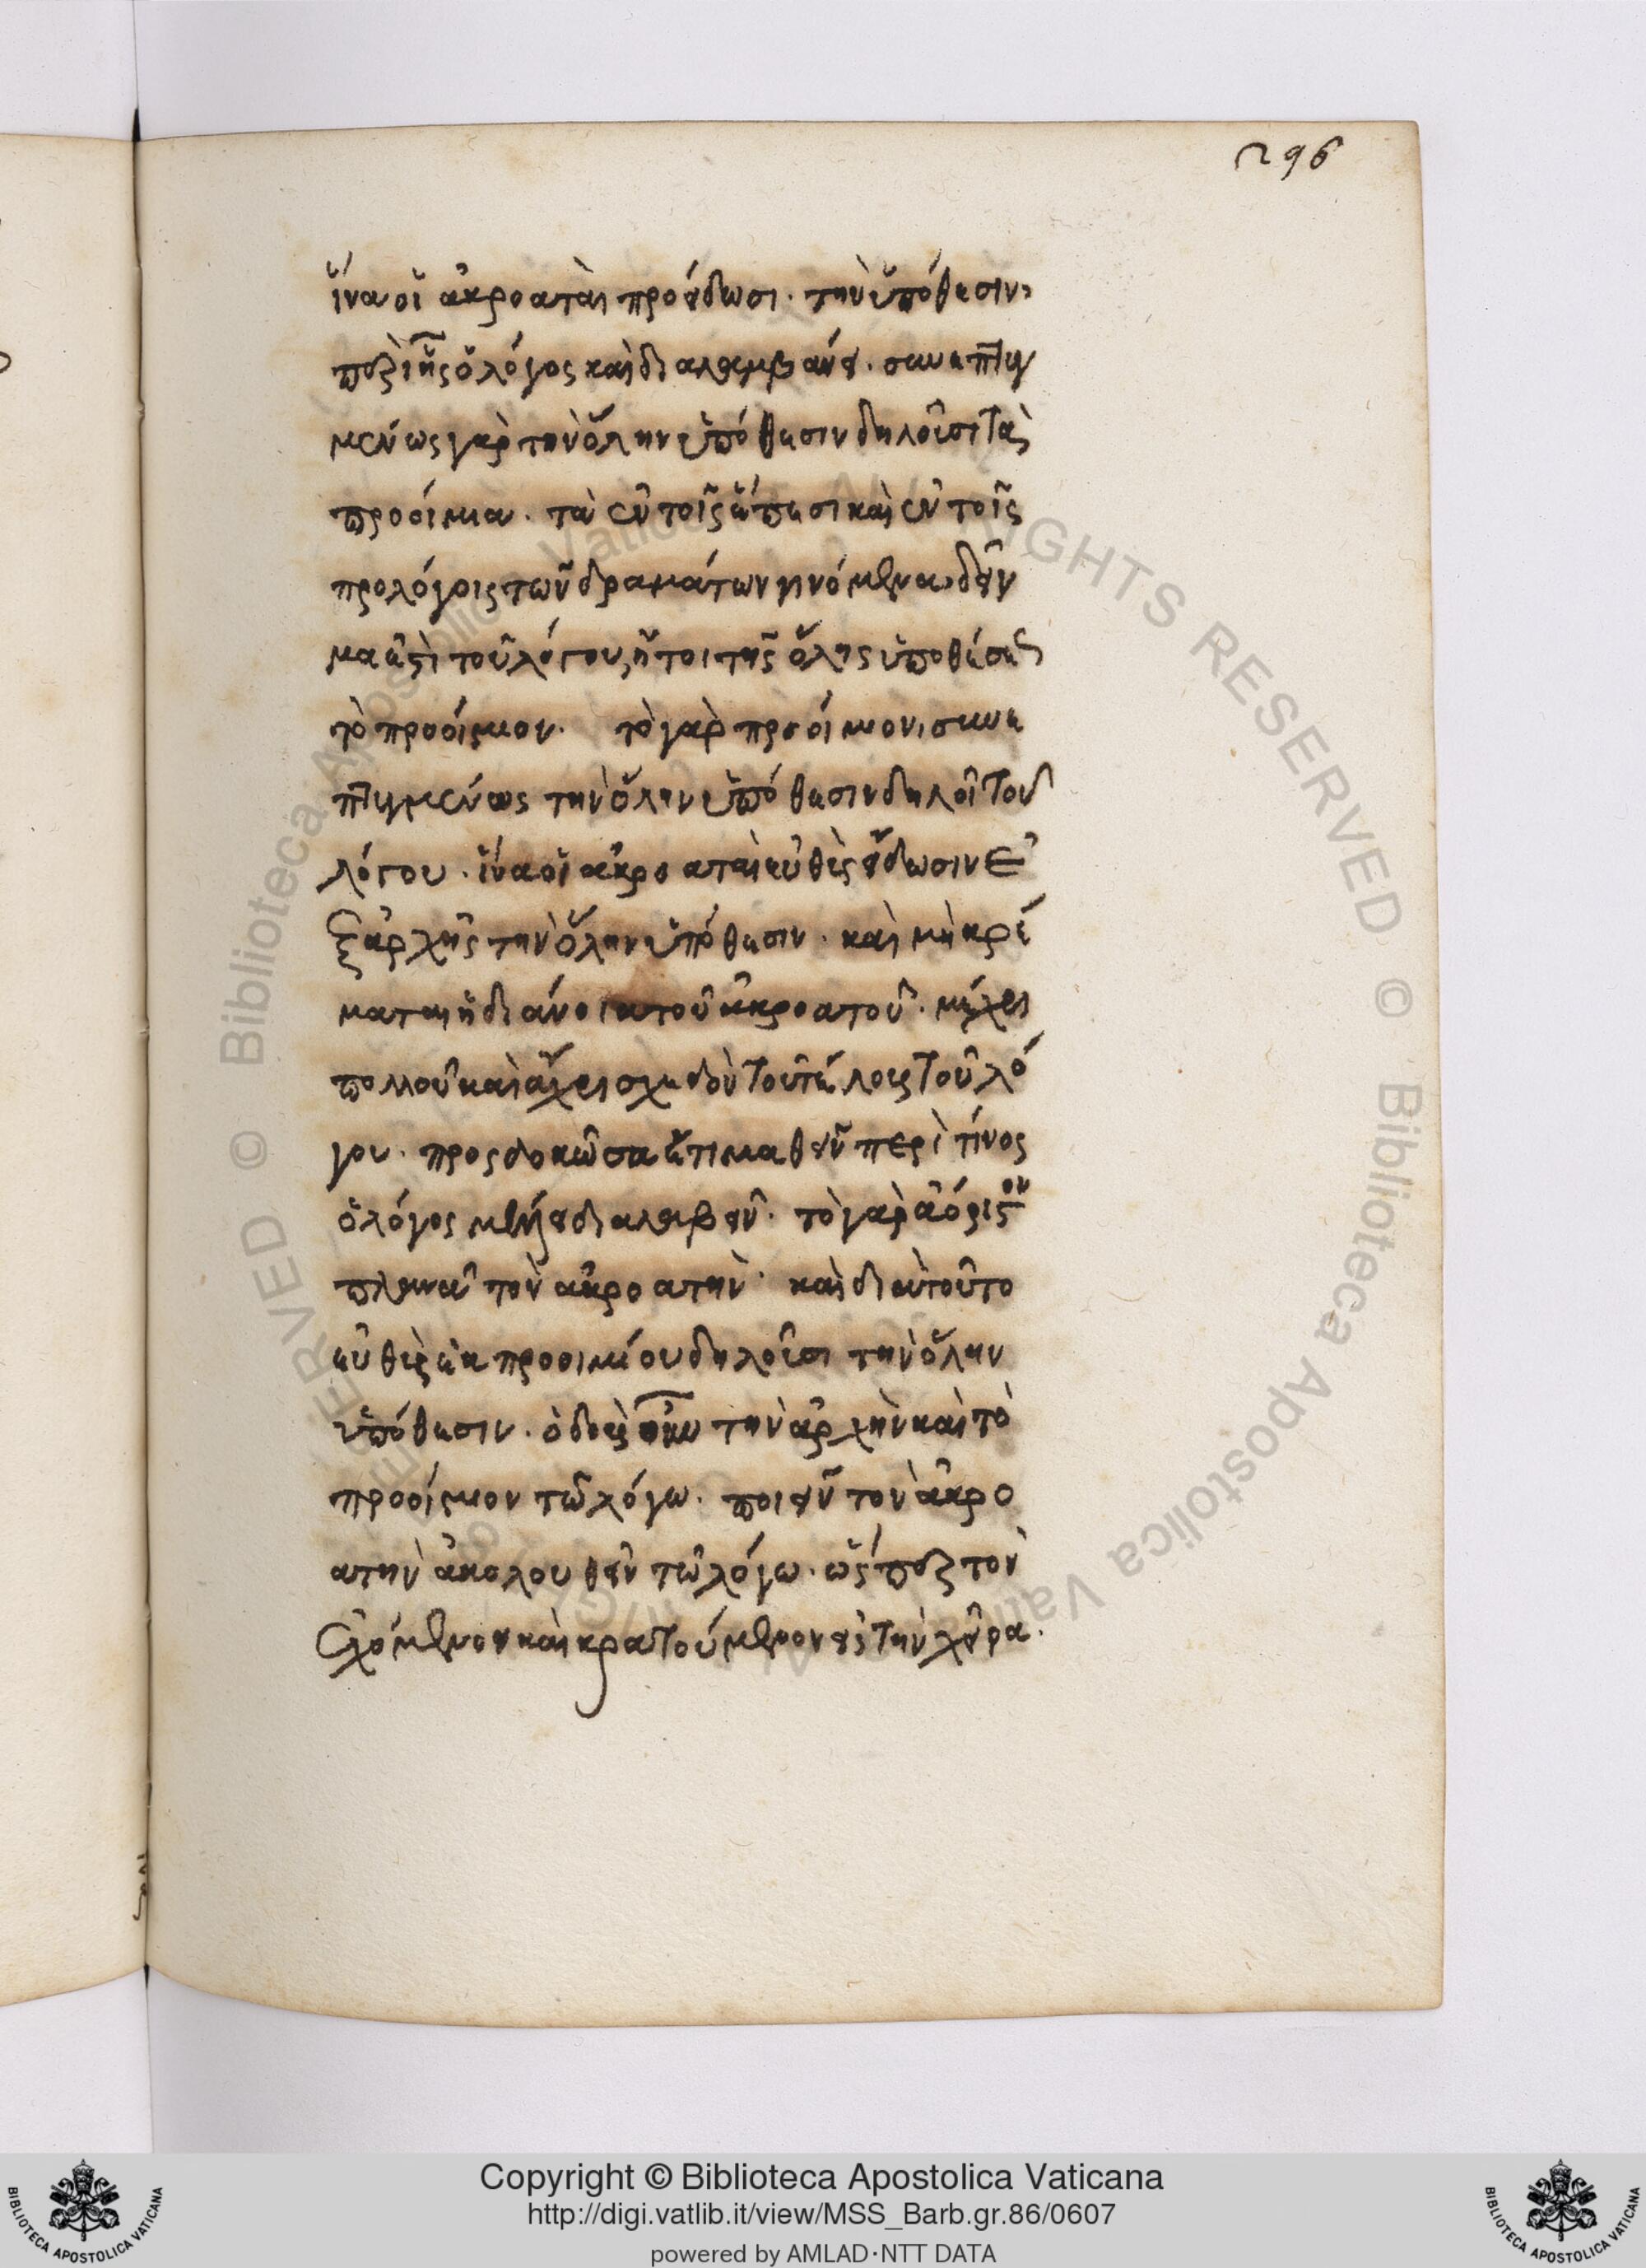 296
ἵνα οἱ ἀκροαταὶ προείδωσι· τὴν ὑπόθεσιν,
περὶ ἧς ὁ λόγος καὶ διαλαμβάνει· συνεπτυγ
μένως γὰρ τὴν ὅλην ὑπόθεσιν δηλοῦσι τὰ
προοίμια· τὰ ἐν τοῖς ἔπεσι καὶ ἐν τοῖς
προλόγοις τῶν δραμάτων γινόμενα, δεῖγ
μα ἐστὶ τοῦ λόγου, ἤτοι τῆς ὅλης ὑποθέσεως
τὸ προοίμιον· τὸ γὰρ προοίμιον, συνε
πτυγμένως τὴν ὅλην ὑπόθεσιν δηλοῖ τοῦ
λόγου· ἵνα οἱ ἀκροαταὶ εὐθὺς εἴδωσιν ἐ
ξαρχῆς τὴν ὅλην ὑπόθεσιν· καὶ μὴ κρέ
μαται ἡ διάνοια τοῦ ἀκροατοῦ· μέχρι
πολλοῦ καὶ ἄχρι σχεδὸν τοῦ τέλους τοῦ λό
γου· προσδοκῶσα ἔτι μαθεῖν περὶ τίνος
ὁ λόγος μέλλει διαλαβεῖν· τὸ γὰρ ἀόριστον
πλανᾶ τὸν ἀκροατήν· καὶ διὰ τοῦτο
εὐθὺς ἐκ προοιμίου δηλοῦσι τὴν ὅλην
ὑπόθεσιν· ὁ δοὺς τὴν ἀρχὴν καὶ τὸ
προοίμιον τῶ λόγω· ποιεῖν τὸν ἀκρο
ατὴν ἀκολουθεῖν τῶ λόγω· ὥσπερ τὸν
ἐχόμενον καὶ κρατούμενον εἰς τὴν χεῖρα.
Copyright © Biblioteca Apostolica Vaticana
http://digi.vatlib.it/view/MSS_Barb.gr.86/0607
powered by AMLAD·NTT DATA